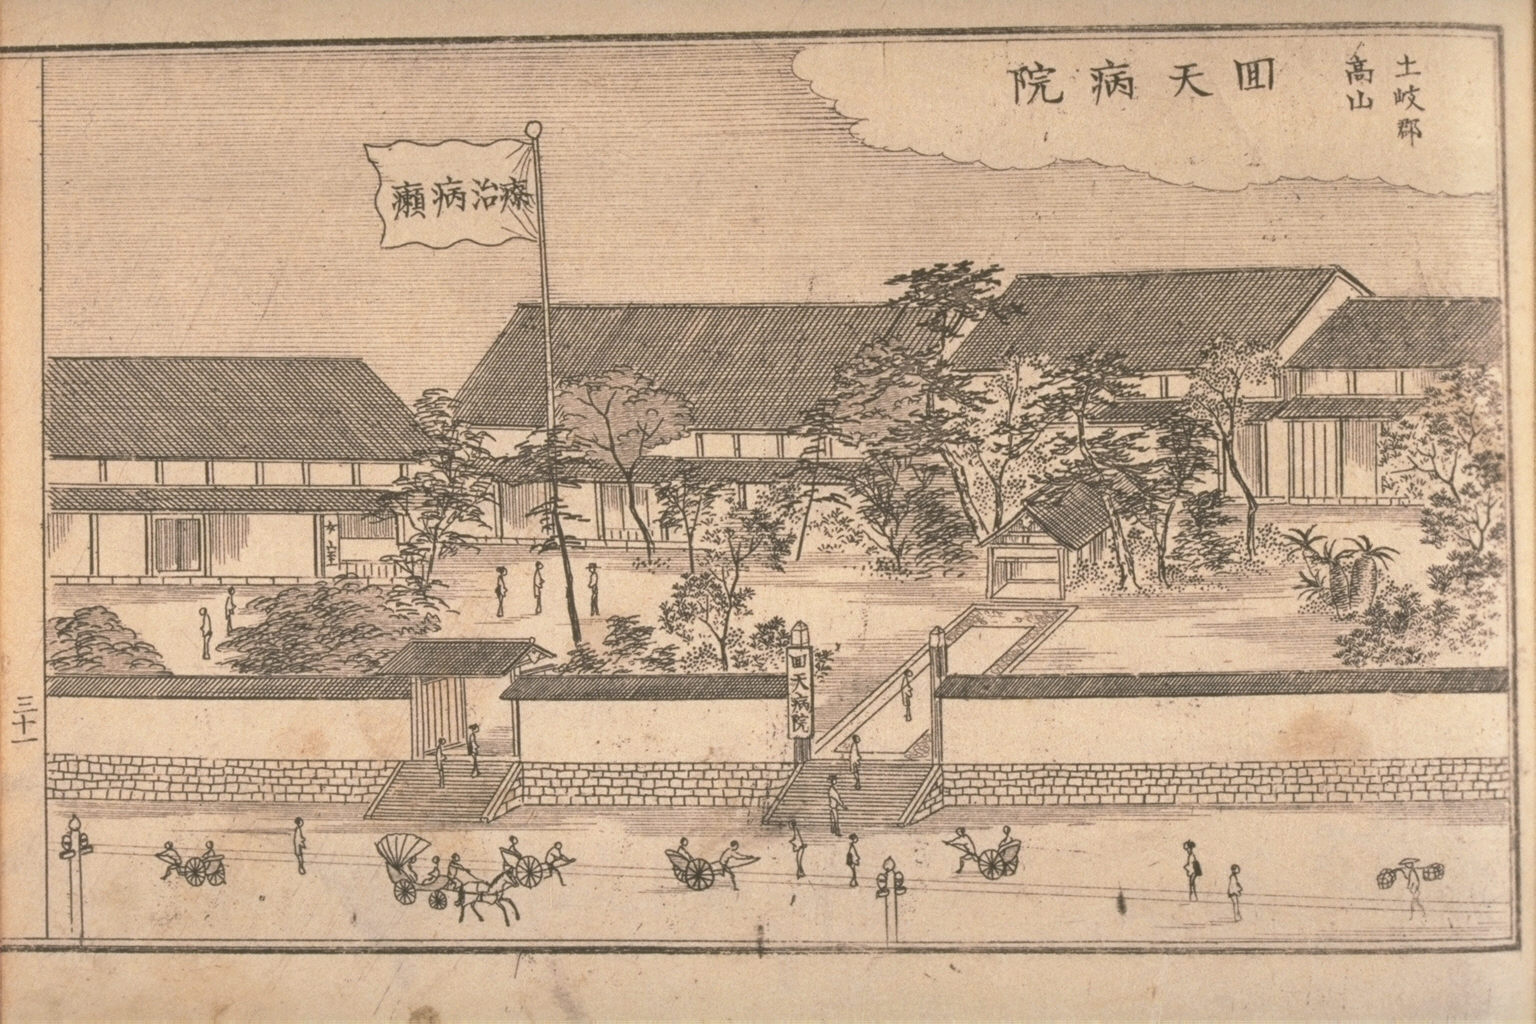 土岐郡
高山
回天病院
療治病癩
回天病院
三十一